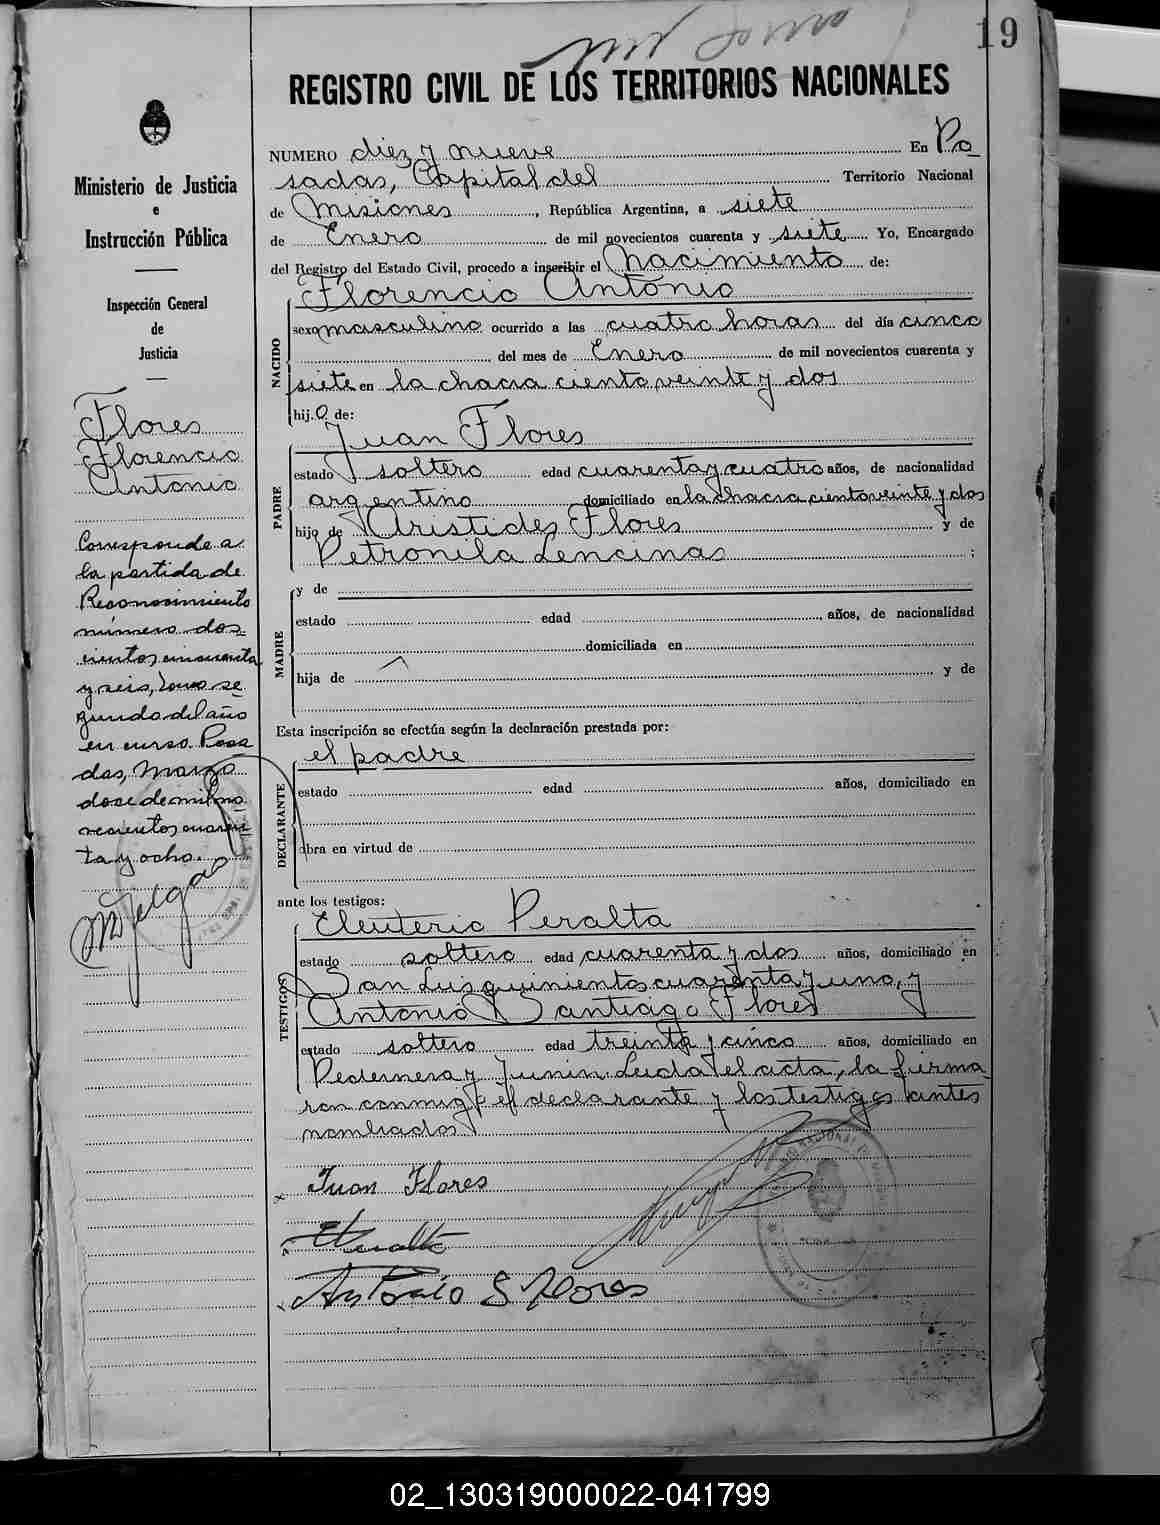 19
REGISTRO CIVIL DE LOS TERRITORIOS NACIONALES
Ministerio de Justicia
e
Instrucción Pública
Inspección General
de
Justicia
Flores
Florencio
Antonio
Corresponde a
la partida de
Reconocimiento
número dos-
cientos cincuenta
y seis, tomo se-
gundo del año
en curso. Posa
das, Marzo
doce de mil no-
vecientos cuaren
ta y ocho.
NUMERO diez y nueve En Po
sadas, Capital del Territorio Nacional
de Misiones, República Argentina, a siete
de Enero de mil novecientos cuarenta y siete Yo, Encargado
del Registro del Estado Civil, procedo a inscribir el Nacimiento de:
NACIDO
Florencio Antonio
sexo masculino ocurrido a las cuatro horas del día cinco
del mes de Enero de mil novecientos cuarenta y
siete en la chacra ciento veinte y dos
hij.o de:
PADRE
Juan Flores
estado soltero edad cuarenta y cuatro años, de nacionalidad
argentino domiciliado en la chacra ciento veinte y dos
hijo de Aristides Flores y de
Petronila Lencinas ;
MADRE
y de
estado edad años, de nacionalidad
domiciliada en
hija de y de
Esta inscripción se efectúa según la declaración prestada por:
DECLARANTE
el padre
estado edad años, domiciliado en
obra en virtud de
ante los testigos:
TESTIGOS
Eleuterio Peralta
estado soltero edad cuarenta y dos años, domiciliado en
San Luis quinientos cuarenta y uno, y
Antonio Santiago Flores
estado soltero edad treinta y cinco años, domiciliado en
Pedernera y Junin. Leida el acta, la firma-
ron conmigo el declarante y los testigos antes
nombrados
x Juan Flores
EPeralta
Antonio S Flores
02_130319000022-041799